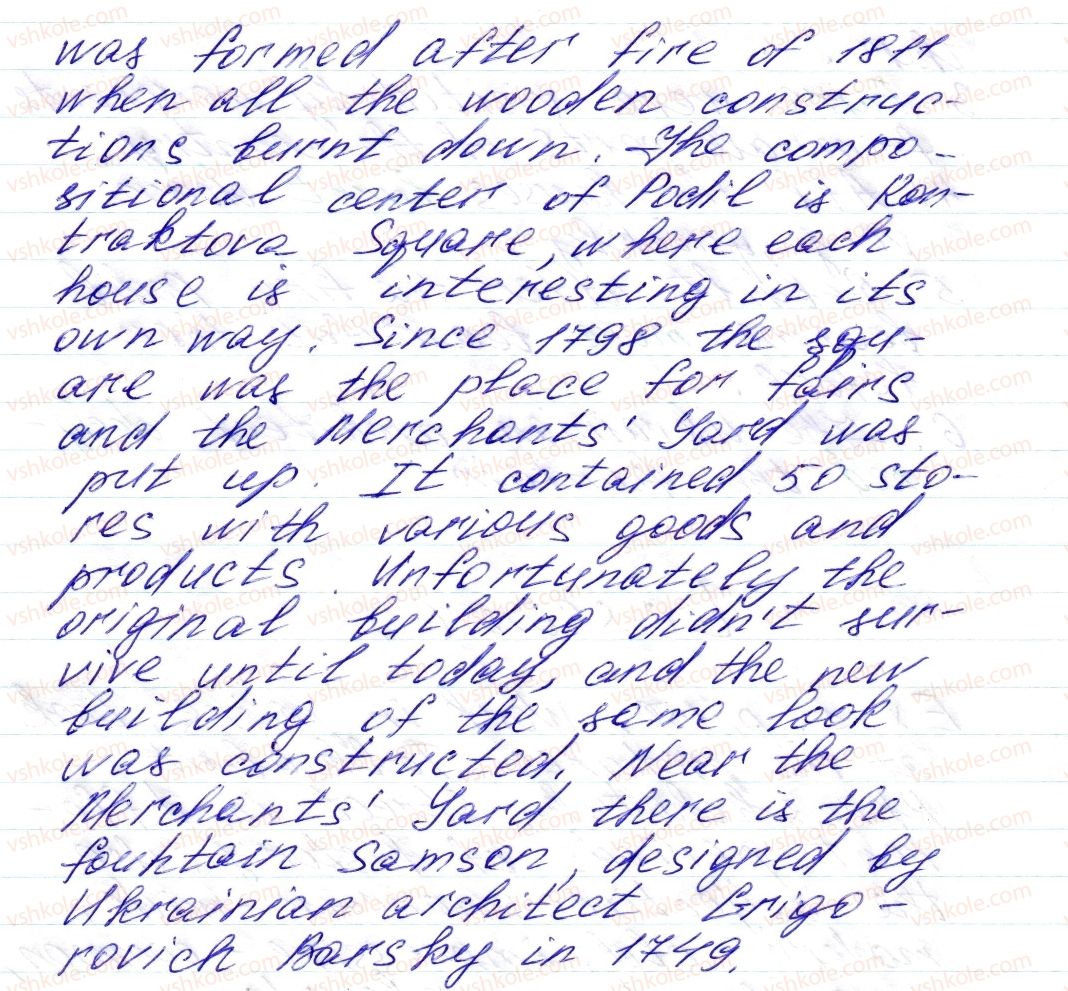 was formed after fire of 1811
when all the wooden construc-
tions burnt down. The compo-
sitional center of Podil is Kon-
traktova Square, where each
house is interesting in its
own way. Since 1798 the squ-
are was the place for fairs
and the Merchants' Yard was
put up. It contained 50 sto-
res with various goods and
products. Unfortunately the
original building didn't sur-
vive until today, and the new
building of the same look
was constructed. Near the
Merchants' Yard there is the
fountain Samson, designed by
Ukrainian architect Grigo-
rovich Barsky in 1749.